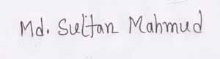 Md. Sultan Mahmud